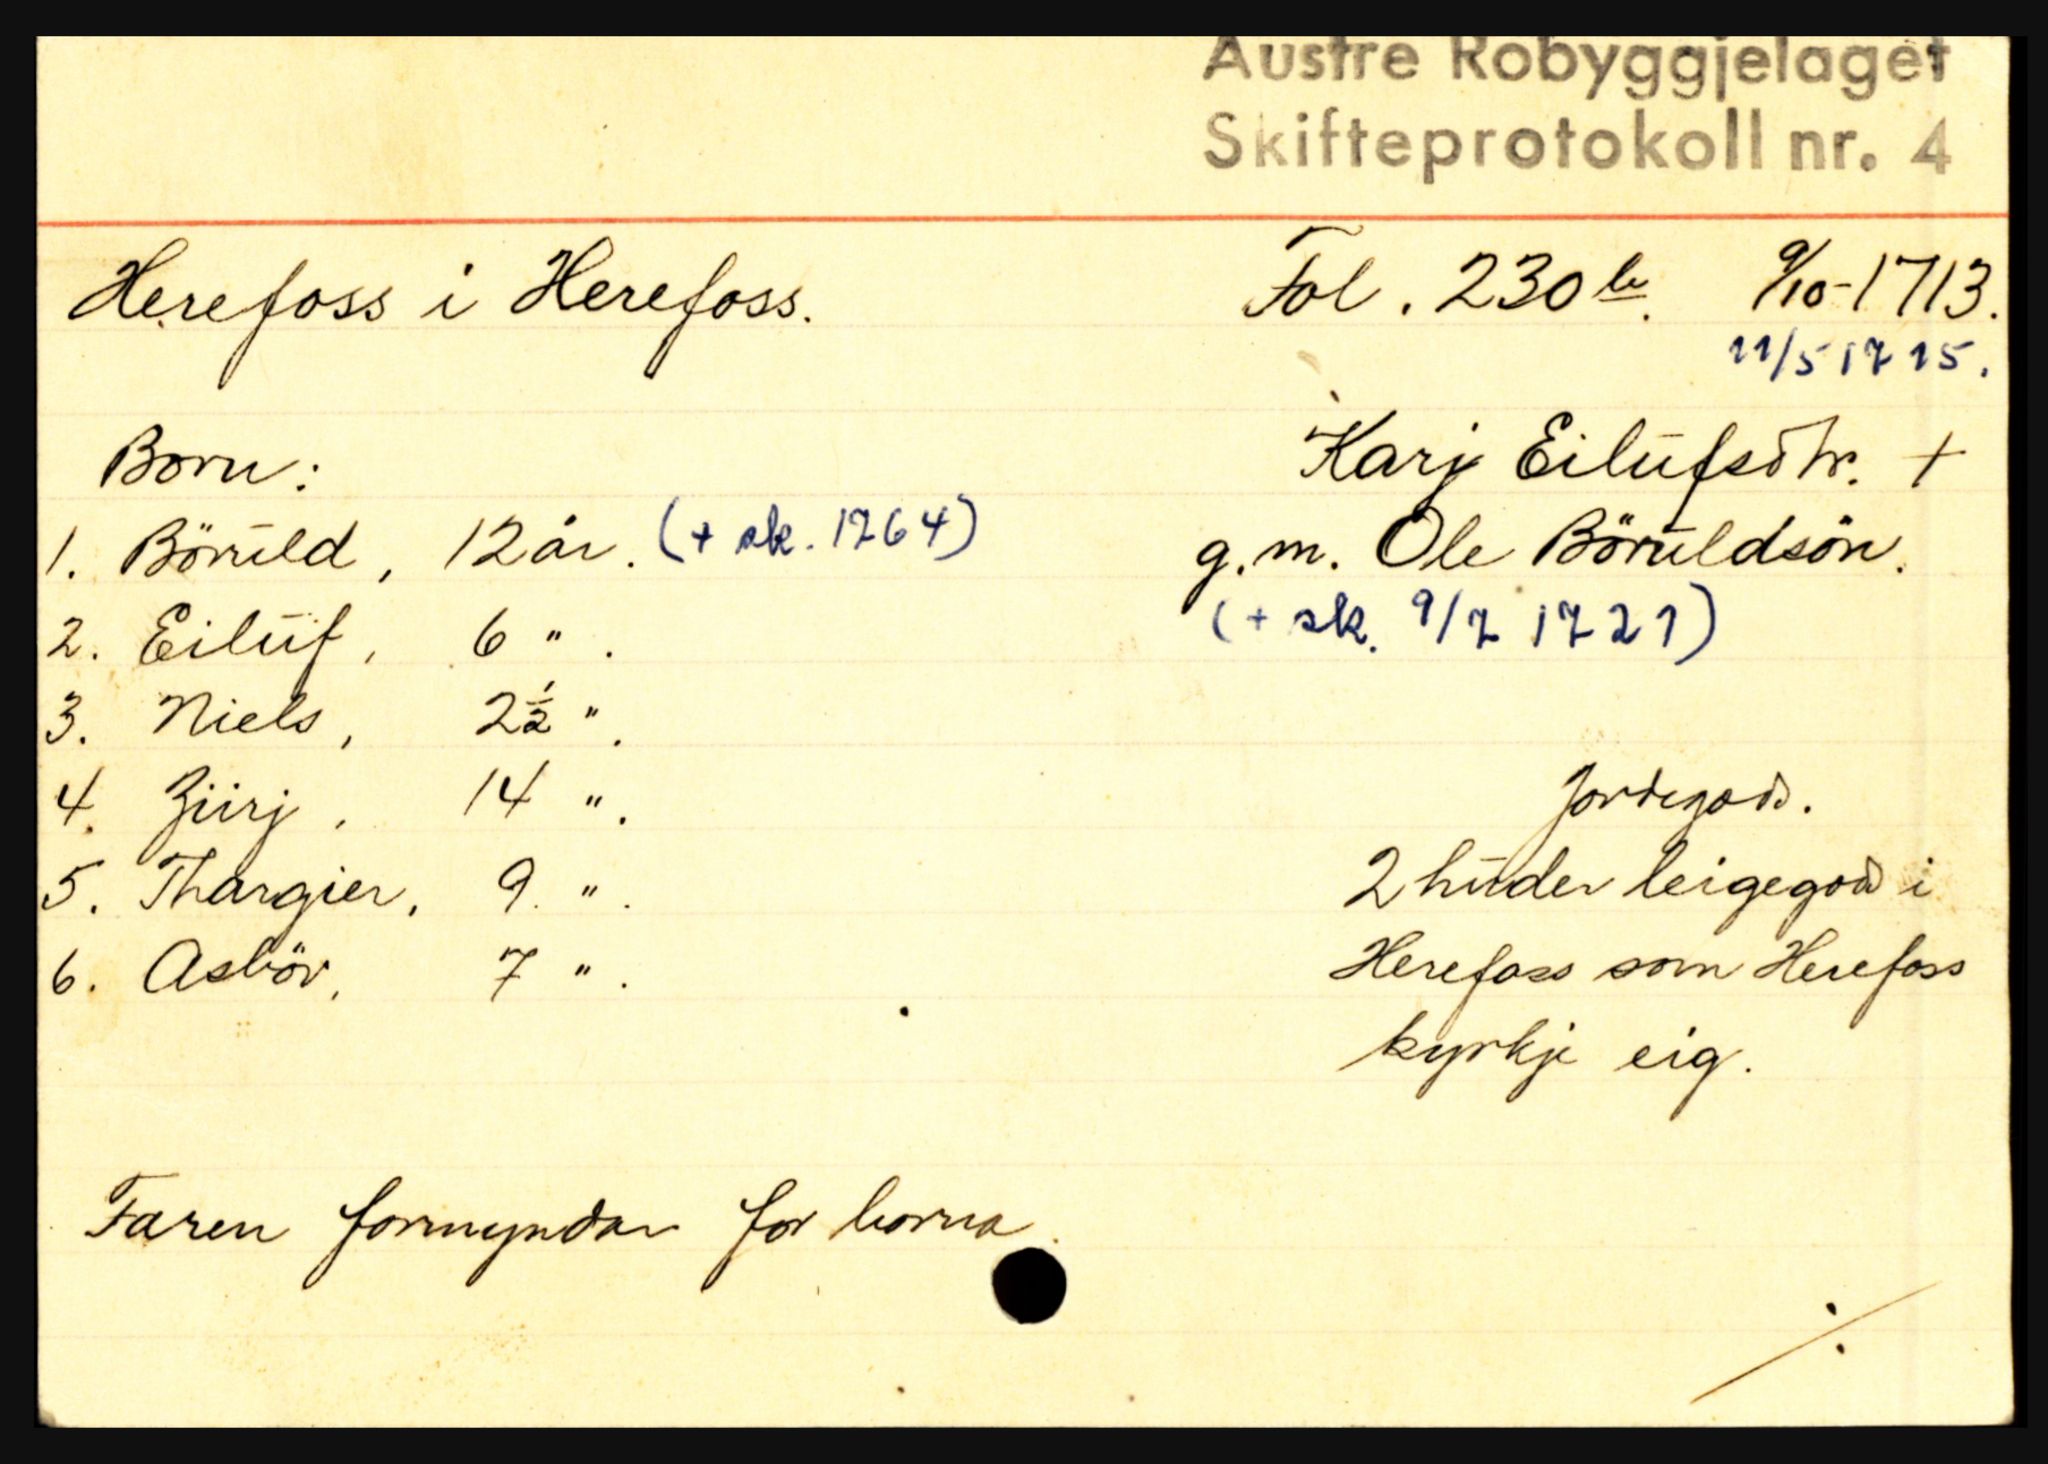 Austre Robyggjelaget
Skifteprotokoll nr. 4
Herefoss i Herefoss.
Fol. 230 b. 9/10-1713.
11/5 1715.
Karj Eilūfsdtr. +
g.m. Ole Börŭldsön.
(+ sk. 9/7 1721)
Born:
1. Börŭld, 12 år. (+ sk. 1764)
2. Eilūf, 6 ".
3. Niels, 2½ ".
4. Ziirj, 14 ".
5. Thargier, 9 ".
6. Asbör, 7 ".
Jordegods.
2 hūder leigegods i
Herefoss som Herefoss
kyrkje eig.
Faren formyndar for borna.